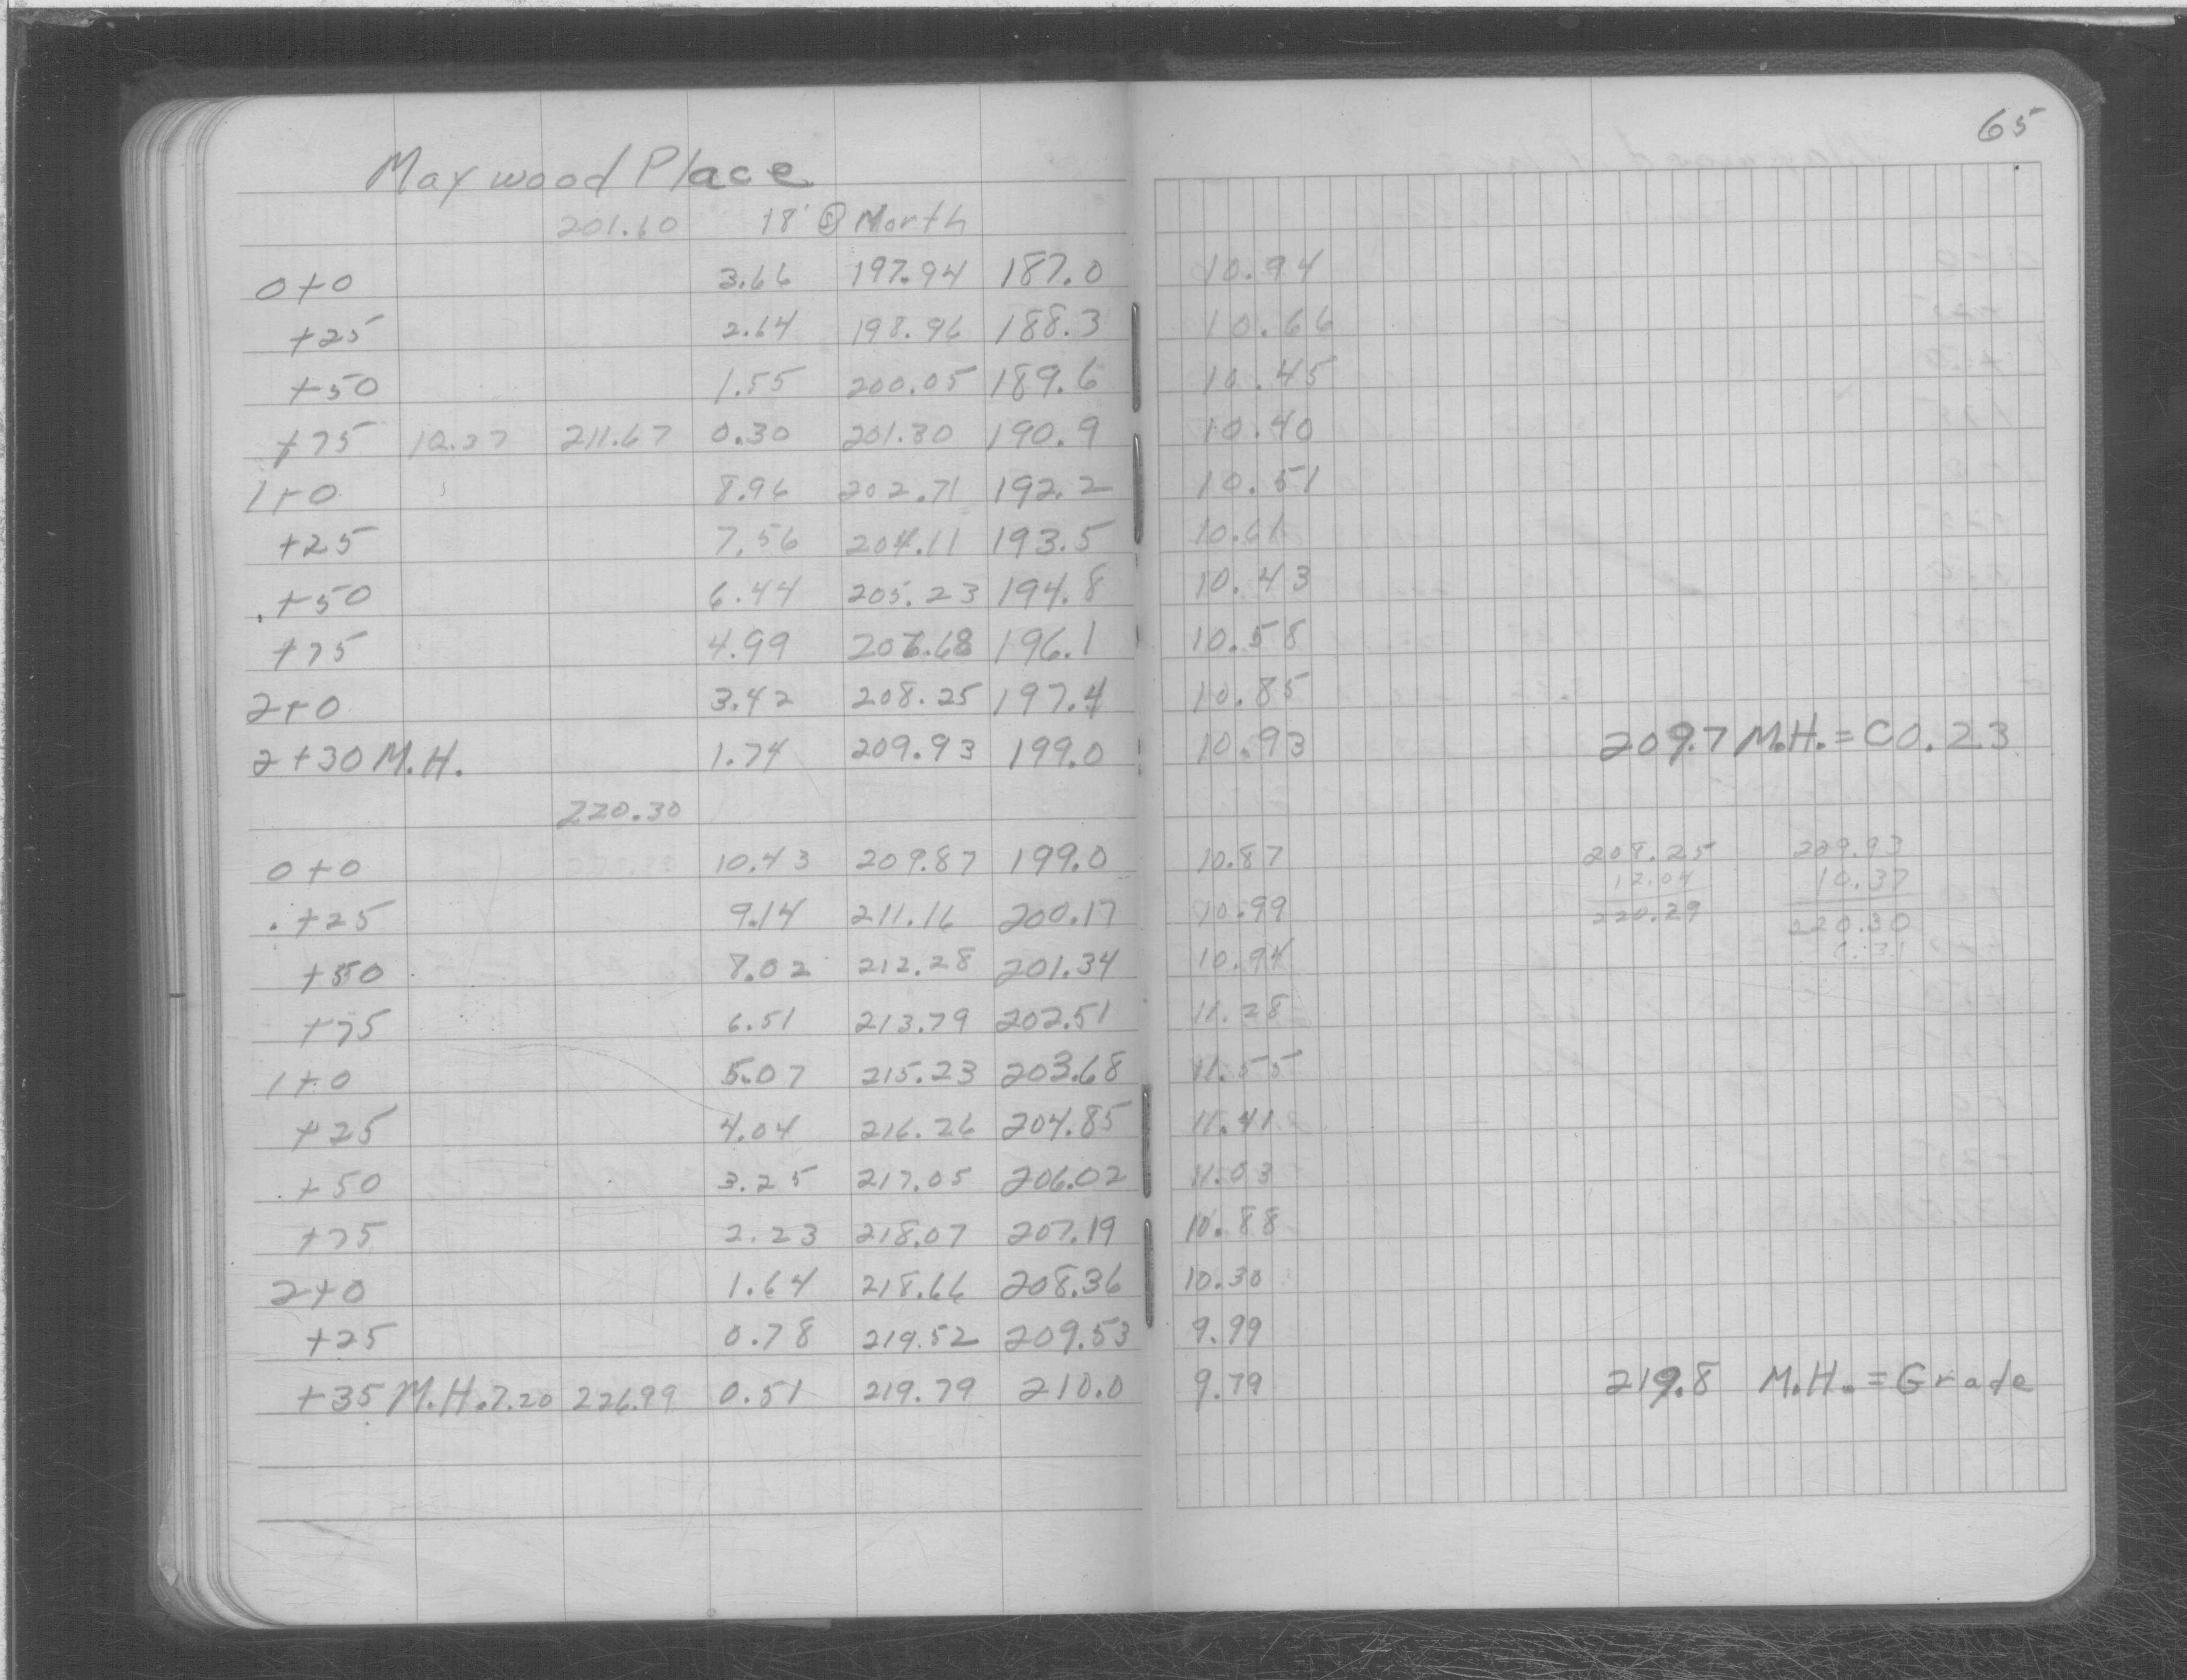 65
Maywood Place
201.60 18' Ⓢ North
0+0 3.66 197.94 187.0 10.94
+25 2.64 198.96 188.3 10.66
+50 1.55 200.05 189.6 10.45
+75 10.37 211.67 0.30 201.30 190.9 10.40
1+0 8.96 202.71 192.2 10.51
+25 7.56 204.11 193.5 10.61
+50 6.44 205.23 194.8 10.43
+75 4.99 206.68 196.1 10.58
2+0 3.42 208.25 197.4 10.85
2+30 M.H. 1.74 209.93 199.0 10.93 209.7 M.H. = C0.23
220.30
0+0 10.43 209.87 199.0 10.87 208.25 209.93
12.04 10.37
+25 9.14 211.16 200.17 10.99 220.29 220.30
+50 8.02 212.28 201.34 10.94
+75 6.51 213.79 202.51 11.28
1+0 5.07 215.23 203.68 11.55
+25 4.04 216.26 204.85 11.41
+50 3.25 217.05 206.02 11.03
+75 2.23 218.07 207.19 10.88
2+0 1.64 218.66 208.36 10.30
+25 0.78 219.52 209.53 9.99
+35 M.H. 7.20 226.99 0.51 219.79 210.0 9.79 219.8 M.H. = Grade